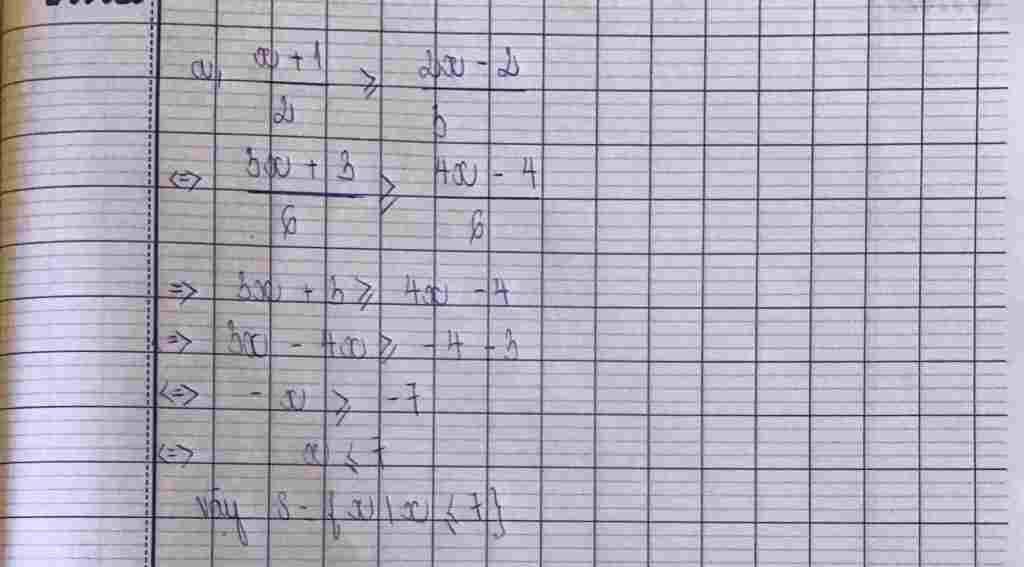 a, x + 1 / 2 ⩾ 2x - 2 / 3
<=> 3x + 3 / 6 ⩾ 4x - 4 / 6
=> 3x + 3 ⩾ 4x - 4
=> 3x - 4x ⩾ -4 - 3
<=> - x ⩾ -7
<=> x ⩽ 7
Vậy S = {x | x ⩽ 7}